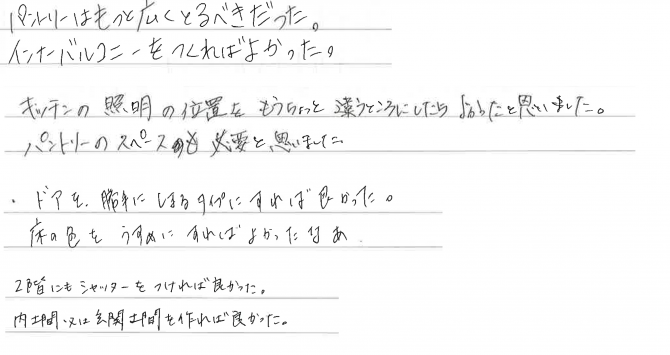 パントリーはもっと広くとるべきだった。
インナーバルコニーをつくればよかった。
キッチンの照明の位置をもうちょっと違うところにしたらよかったと思いました。
パントリーのスペースも必要と思いました。
・ドアを、勝手にしまるタイプにすれば良かった。
床の色をうすめにすればよかったなあ
2階にもシャッターをつければ良かった。
内土間・又は玄関土間を作れば良かった。